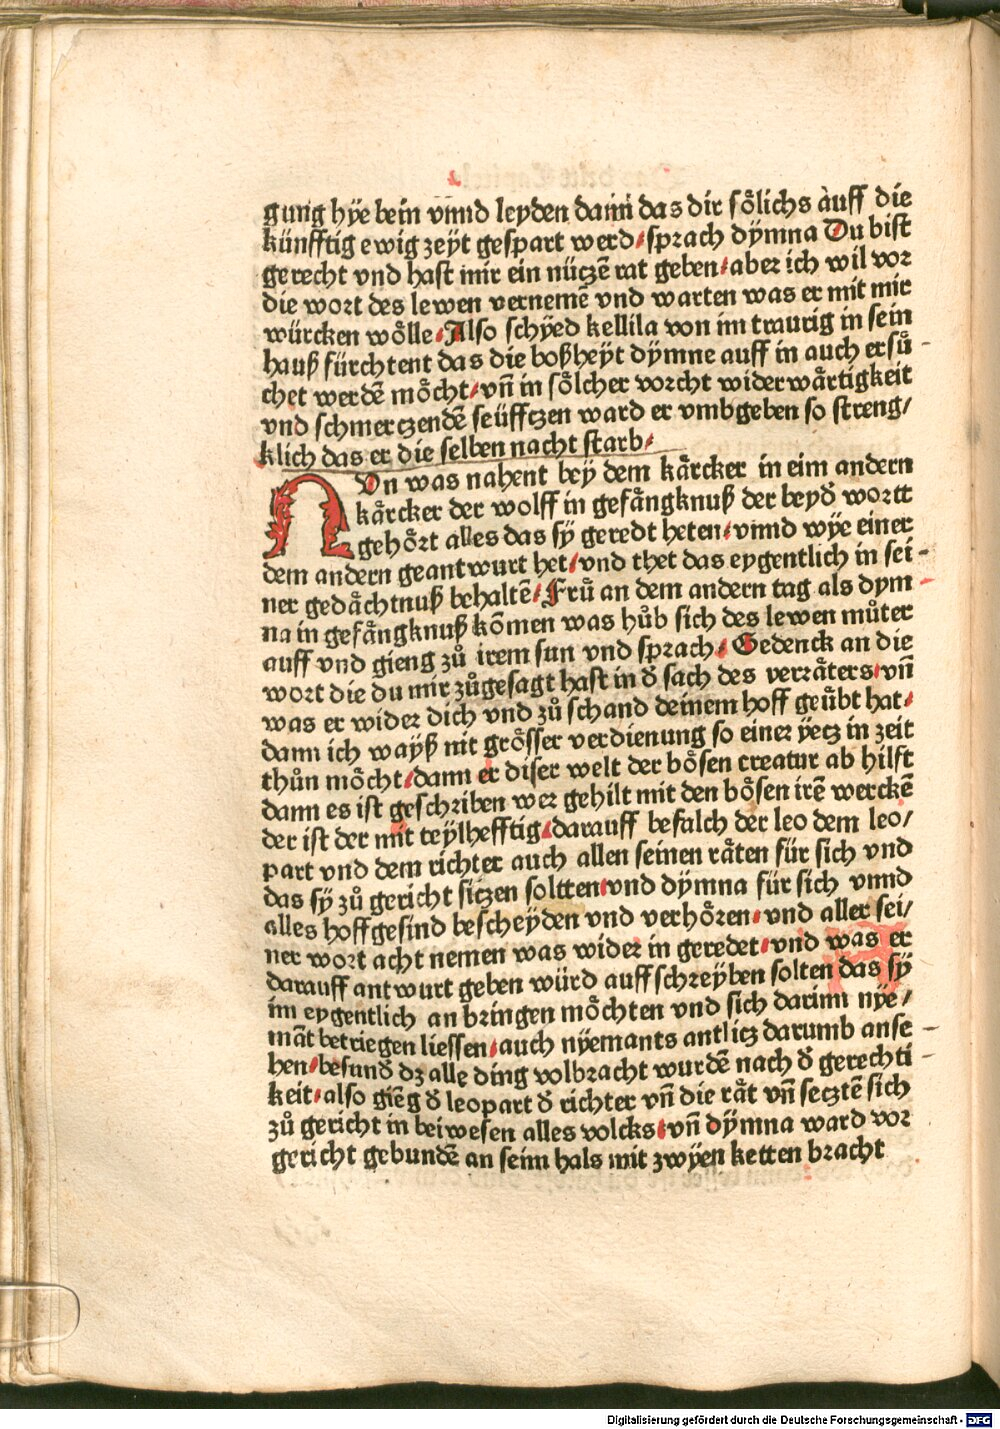 gung hÿe bein vnnd leyden damit das dir soͤlichs auff die
künfftig ewig zeÿt gespart werd / sprach dÿmna Du bist
gerecht vnd hast mir ein nüczē rat geben / aber ich wil vor
die wort des lewen vernemē vnd warten was er mit mir
würcken woͤlle / Also schÿed kellila von im traurig in sein
hauß fürchtent das die boßheÿt dÿmne auff in auch ersuͦ -
chet werdē moͤcht / vn̄ in soͤlcher vorcht widerwaͤrtigkeit
vnd schmerczendē seüffczen ward er vmbgeben so streng /
klich das er die selben nacht starb /
NVn was nahent beÿ dem kaͤrcker in eim andern
kaͤrcker der wolff in gefaͤngknuß der beyđ wortt
gehoͤrt alles das sÿ geredt heten / vnnd wÿe einer
dem andern geantwurt het / vnd thet das eygentlich in sei -
ner gedaͤchtnuß behaltē / Fruͤ an dem andern tag als dym -
na in gefaͤngknuß kōmen was huͦb sich des lewen muͦter
auff vnd gieng zuͦ irem sun vnd sprach / Gedenck an die
wort die du mir zuͦgesagt hast in đ sach des verraͤters / vn̄
was er wider dich vnd zuͦ schand deinem hoff geuͤbt hat /
dann ich waÿß nit groͤsser verdienung so einer ÿecz in zeit
thuͦn moͤcht / dann er diser welt der boͤsen creatur ab hilft
dann es ist geschriben wer gehilt mit den boͤsen irē werckē
der ist der mit teÿlhefftig / darauff befalch der leo dem leo /
part vnd dem richter auch allen seinen raͤten für sich vnd
das sÿ zuͦ gericht siczen soltten / vnd dÿmna für sich vnnd
alles hoffgesind bescheÿden vnd verhoͤren / vnd aller sei /
ner wort acht nemen was wider in geredet / vnd was er
darauff antwurt geben würd auff schreÿben solten das sÿ
im eygentlich an bringen moͤchten vnd sich darinn nÿe /
māt betriegen liessen / auch nÿemants antlicz darumb anse -
hen / besund dz alle ding volbracht wurdē nach đ gerechti -
keit / also giēg đ leopart đ richter vn̄ die raͤt vn̄ secztē sich
zuͦ gericht in beiwesen alles volcks / vn̄ dÿmna ward vor
gericht gebundē an seim hals mit zwÿen ketten bracht
Digitalisierung gefördert durch die Deutsche Forschungsgemeinschaft - DFG